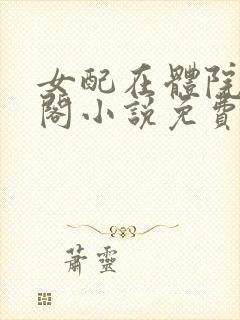 女配在體院
閣小說免費
蕭靈